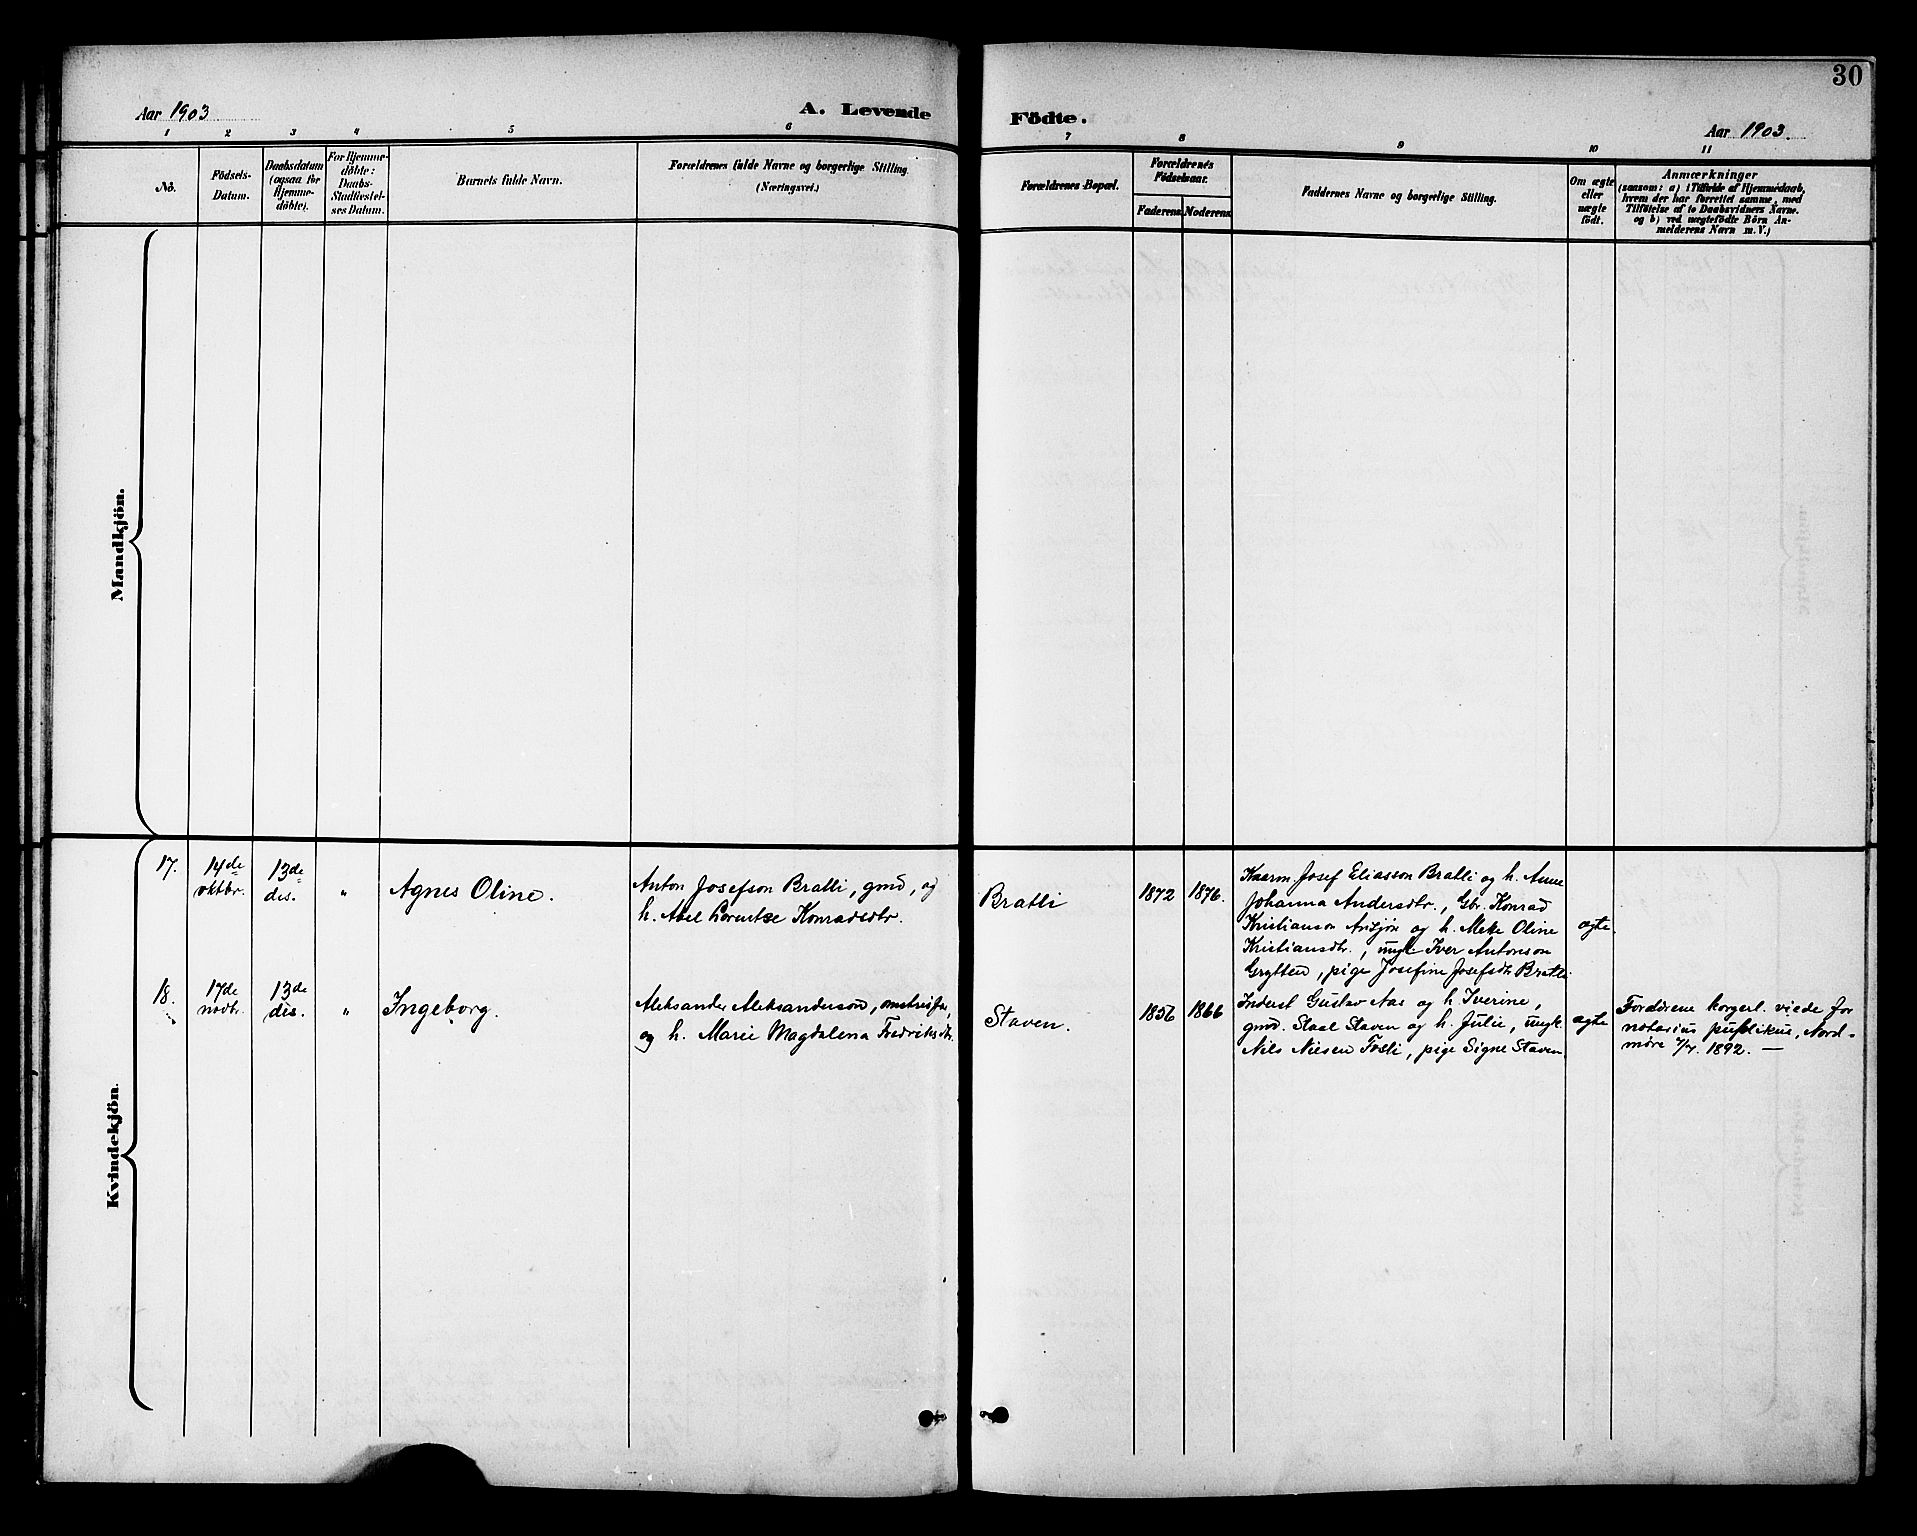 30
Aar 1903
A. Levende Födte.
Aar 1903.
1 2 3 4 5 6 7 8 9 10 11
No.
Födsels-
Datum.
Daabsdatum
(ogsaa for
Hjemme-
döbte).
For Hjemme-
döbte:
Daabs-
Stadfæstel-
ses Datum.
Barnets fulde Navn.
Forældrenes fulde Navne og borgerlige Stilling.
(Næringsvei.)
Forældrenes Bopæl.
Forældrenes
Födselsaar.
Faderens
Moderens
Faddernes Navne og borgerlige Stilling.
Om ægte
eller
uægte
födt.
Anmærkninger
(saasom: a) i Tilfælde af Hjemmedaab,
hvem der har forrettet samme, med
Tilföielse af to Daabsvidners Navne.
og b) ved uægtefödte Börn An-
melderens Navn m. V.)
Mandkjön.
Kvindekjön.
17.
14de
oktbr.
13de
des.
"
Agnes Oline.
Anton Josefson Bratli, gmd, og
h. Abel Lorentze Konradsdtr.
Bratli
1872
1876.
Kaarm. Josef Eliasson Bratli og h. Anne
Johanna Andersdtr., Gbr. Konrad
Kristianson Ansjön og h. Mette Oline
Kristiansdtr., ungk. Iver Antonson
Grytten, pige Josefine Josefsdtr. Bratli.
ægte.
18.
17de
novbr.
13de
des.
"
Ingeborg.
Aleksander Aleksanderson,
og h. Marie Magdalena Fredriksdtr.
Staven.
1856
1866
Inderst Gustav Aas og h. Iverine,
gmd. Staal Staven og h. Julie, ungk.
Nils Nilsen Fosli, pige Signe Staven.
ægte
Foræld­rene borgerl. viede for
notarius publikus, Nord-
møre 1892. —